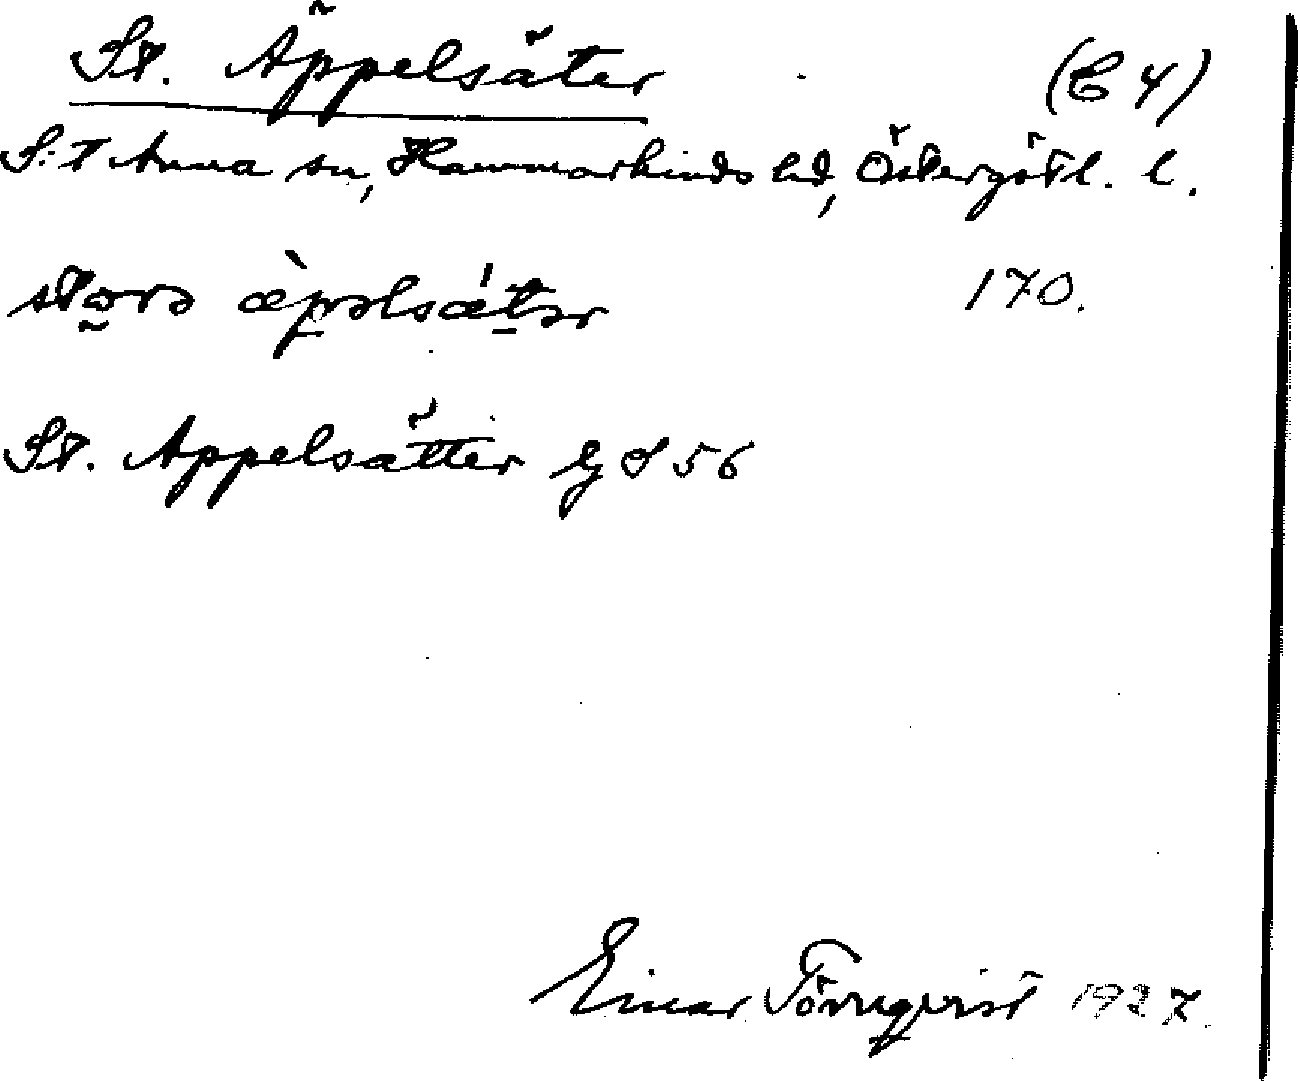 St. Äppelsäter (C 4)
S:t Anna sn, Hammarkinds hd, Östergötl. l.
storə æ̀pəlsǽtər 170.
St. Appelsätter Gd 56
Einar Törnqvist 1927.